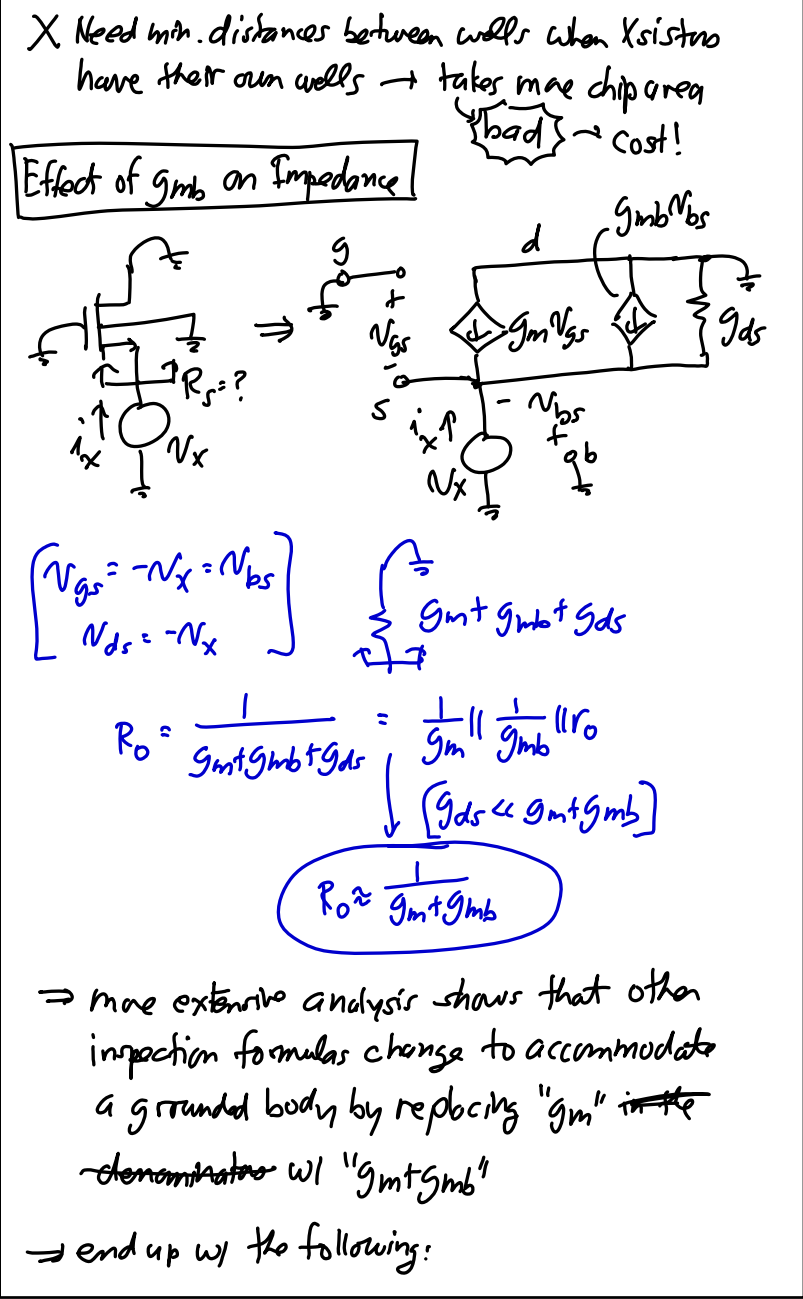 X Need min. distances between wells when Xsistors
have their own wells → takes more chip area
bad → cost!
Effect of gmb on Impedance
g d gmbVbs
+ Vgs - gmVgs gds
Rs=? ⇒
s - Vbs +
ix Vx ix Vx b
Vgs = -Vx = Vbs
Vds = -Vx
gm + gmb + gds
Ro = 1/(gm+gmb+gds) = 1/gm || 1/gmb || ro
[gds << gm+gmb]
Ro ≈ 1/(gm+gmb)
⇒ more extensive analysis shows that other
inspection formulas change to accommodate
a grounded body by replacing "gm" in the
denominator w/ "gm+gmb"
⇒ end up w/ the following: